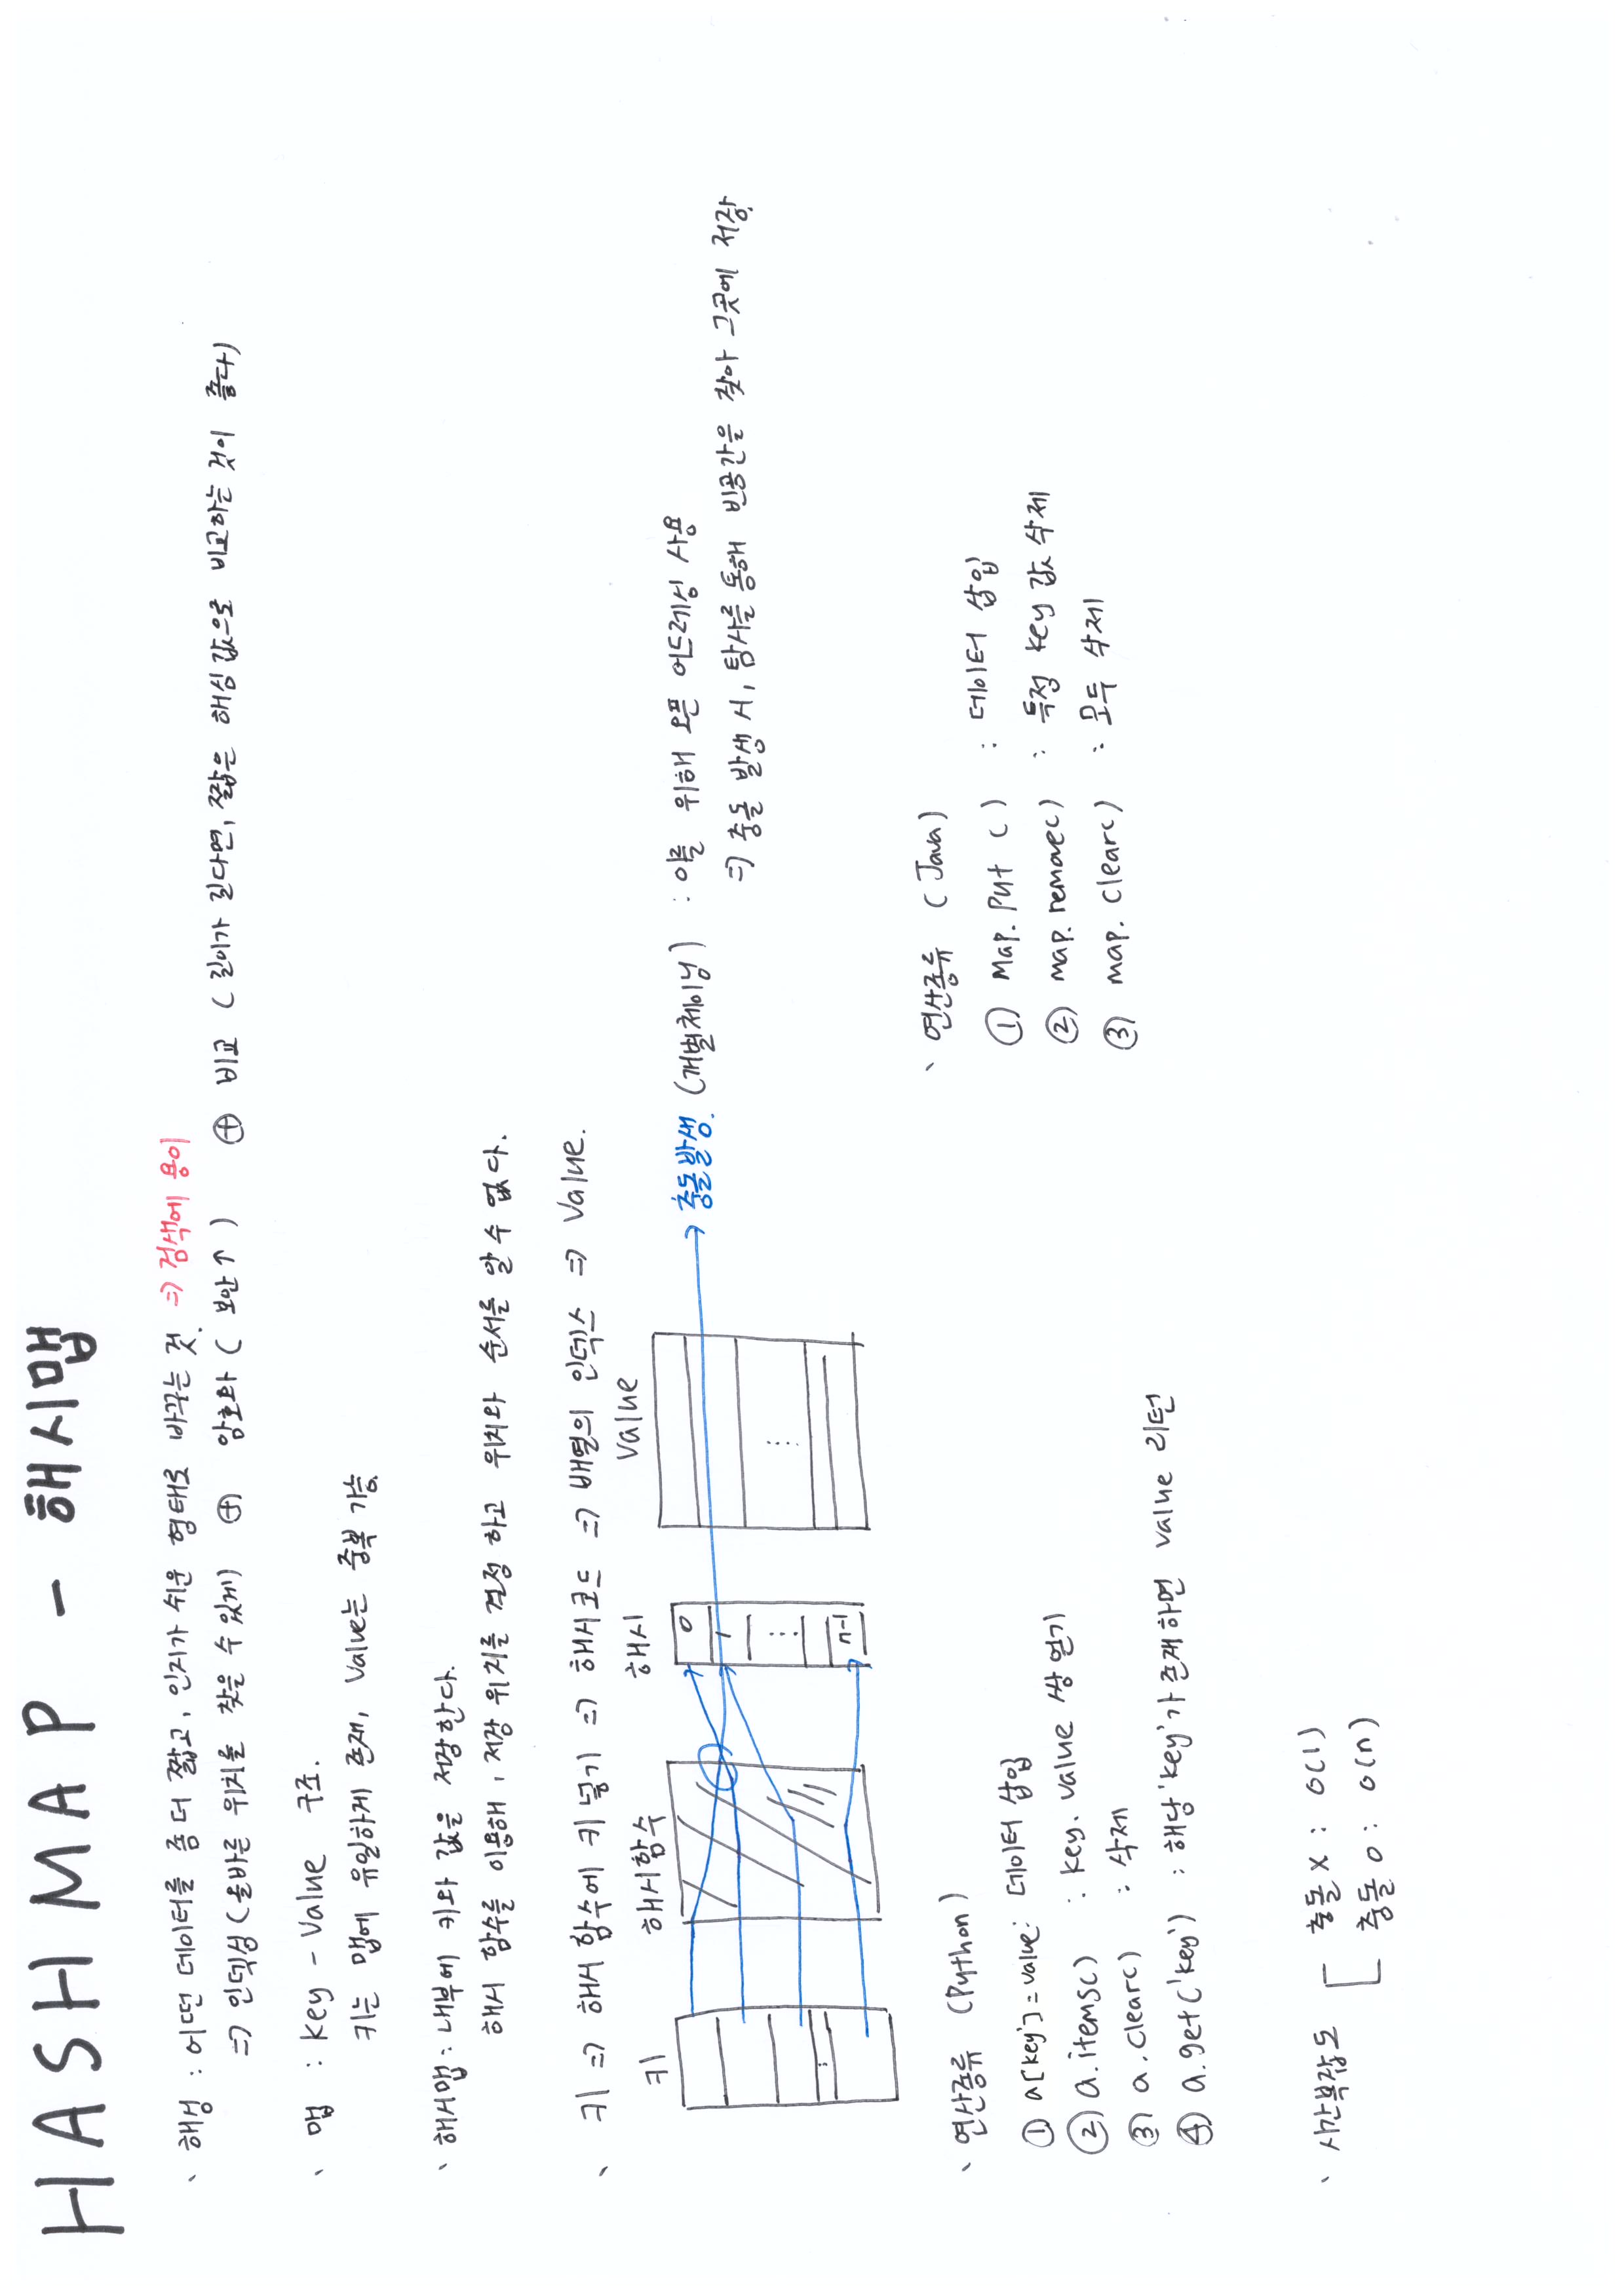 HASHMAP - 해시맵
、 해싱 : 어떤 데이터를 좀 더 짧고, 인지가 쉬운 형태로 바꾸는 것. => 검색에 용이
=> 인덱싱 (올바른 위치를 찾을 수 있게) ⊕ 암호화 ( 보안↑ ) ⊕ 비교 ( 길이가 길다면, 짧은 해싱 값으로 비교하는 것이 좋다)
、 맵 : Key - Value 구조.
키는 맵에 유일하게 존재, Value는 중복 가능
、 해시맵 : 내부에 키와 값을 저장한다.
해시 함수를 이용해, 저장 위치를 결정 하고 위치와 순서를 알 수 없다.
、 키 => 해시 함수에 키 넣기 => 해시코드 => 배열의 인덱스 => Value.
키 해시함수 해시 Value
0
1
⋮
n-1
→ 충돌발생. (개별체이닝) : 이를 위해 오픈 어드레싱 사용
=> 충돌 발생 시, 탐사를 통해 빈공간을 찾아 그곳에 저장
、 연산종류 (Python)
① a['key']=value: 데이터 삽입
② a.items() : key. value 쌍 얻기
③ a.clear() : 삭제
④ a.get('key') : 해당 'key'가 존재하면 value 리턴
、 연산종류 (Java)
① Map. Put ( ) : 데이터 삽입
② map. remove() : 특정 key 값 삭제
③ map. clear() : 모두 삭제
、 시간복잡도 [ 충돌 X : O(1)
충돌 O : O(n)